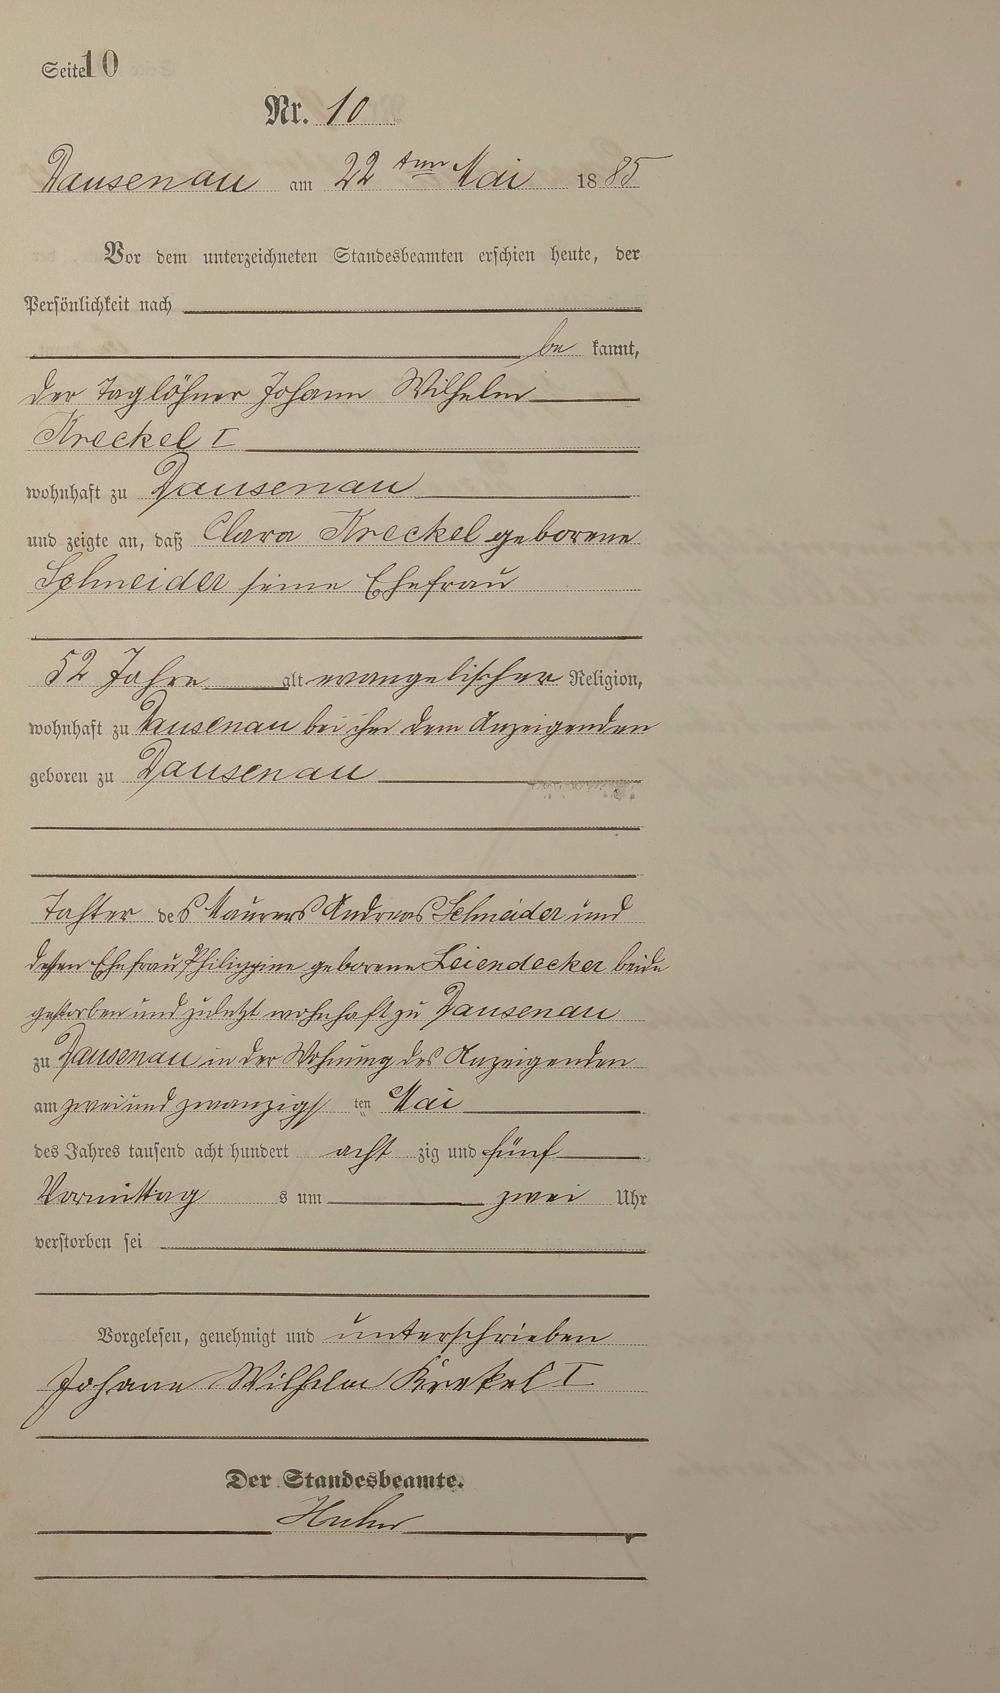 Seite 10
Nr. 10
Dausenau am 22 ten Mai 1885
Vor dem unterzeichneten Standesbeamten erschien heute, der
Persönlichkeit nach
be kannt,
der Taglöhner Johann Wilhelm
Kreckel I
wohnhaft zu Dausenau
und zeigte an, daß Clara Kreckel geborene
Schneider seine Ehefrau
52 Jahre alt evangelischer Religion,
wohnhaft zu Dausenau bei ihm dem Anzeigenden
geboren zu Dausenau
Tochter des Maurers Andreas Schneider und
dessen Ehefrau Philippine geborene Leiendecker beide
gestorben und zuletzt wohnhaft zu Dausenau
zu Dausenau in der Wohnung des Anzeigenden
am zwei und zwanzigs ten Mai
des Jahres tausend acht hundert acht zig und fünf
Vormittag s um zwei Uhr
verstorben sei
Vorgelesen, genehmigt und unterschrieben
Johann Wilhelm Krekel I
Der Standesbeamte.